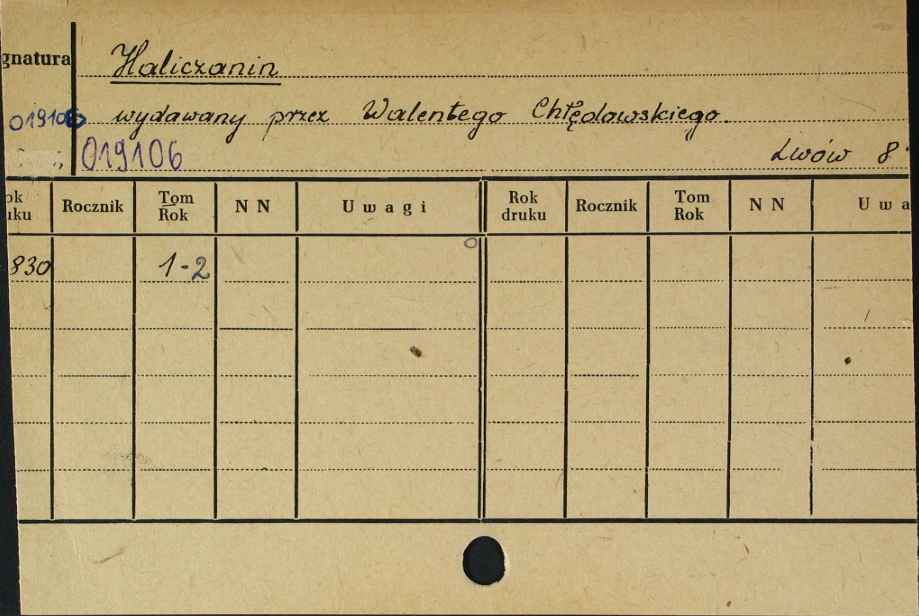 gnatura Haliczanin
019106 wydawany przez Walentego Chłędowskiego.
019106 Lwów 8°
ok
uku Rocznik Tom
Rok N N Uwagi Rok
druku Rocznik Tom
Rok N N Uwa
830 1-2